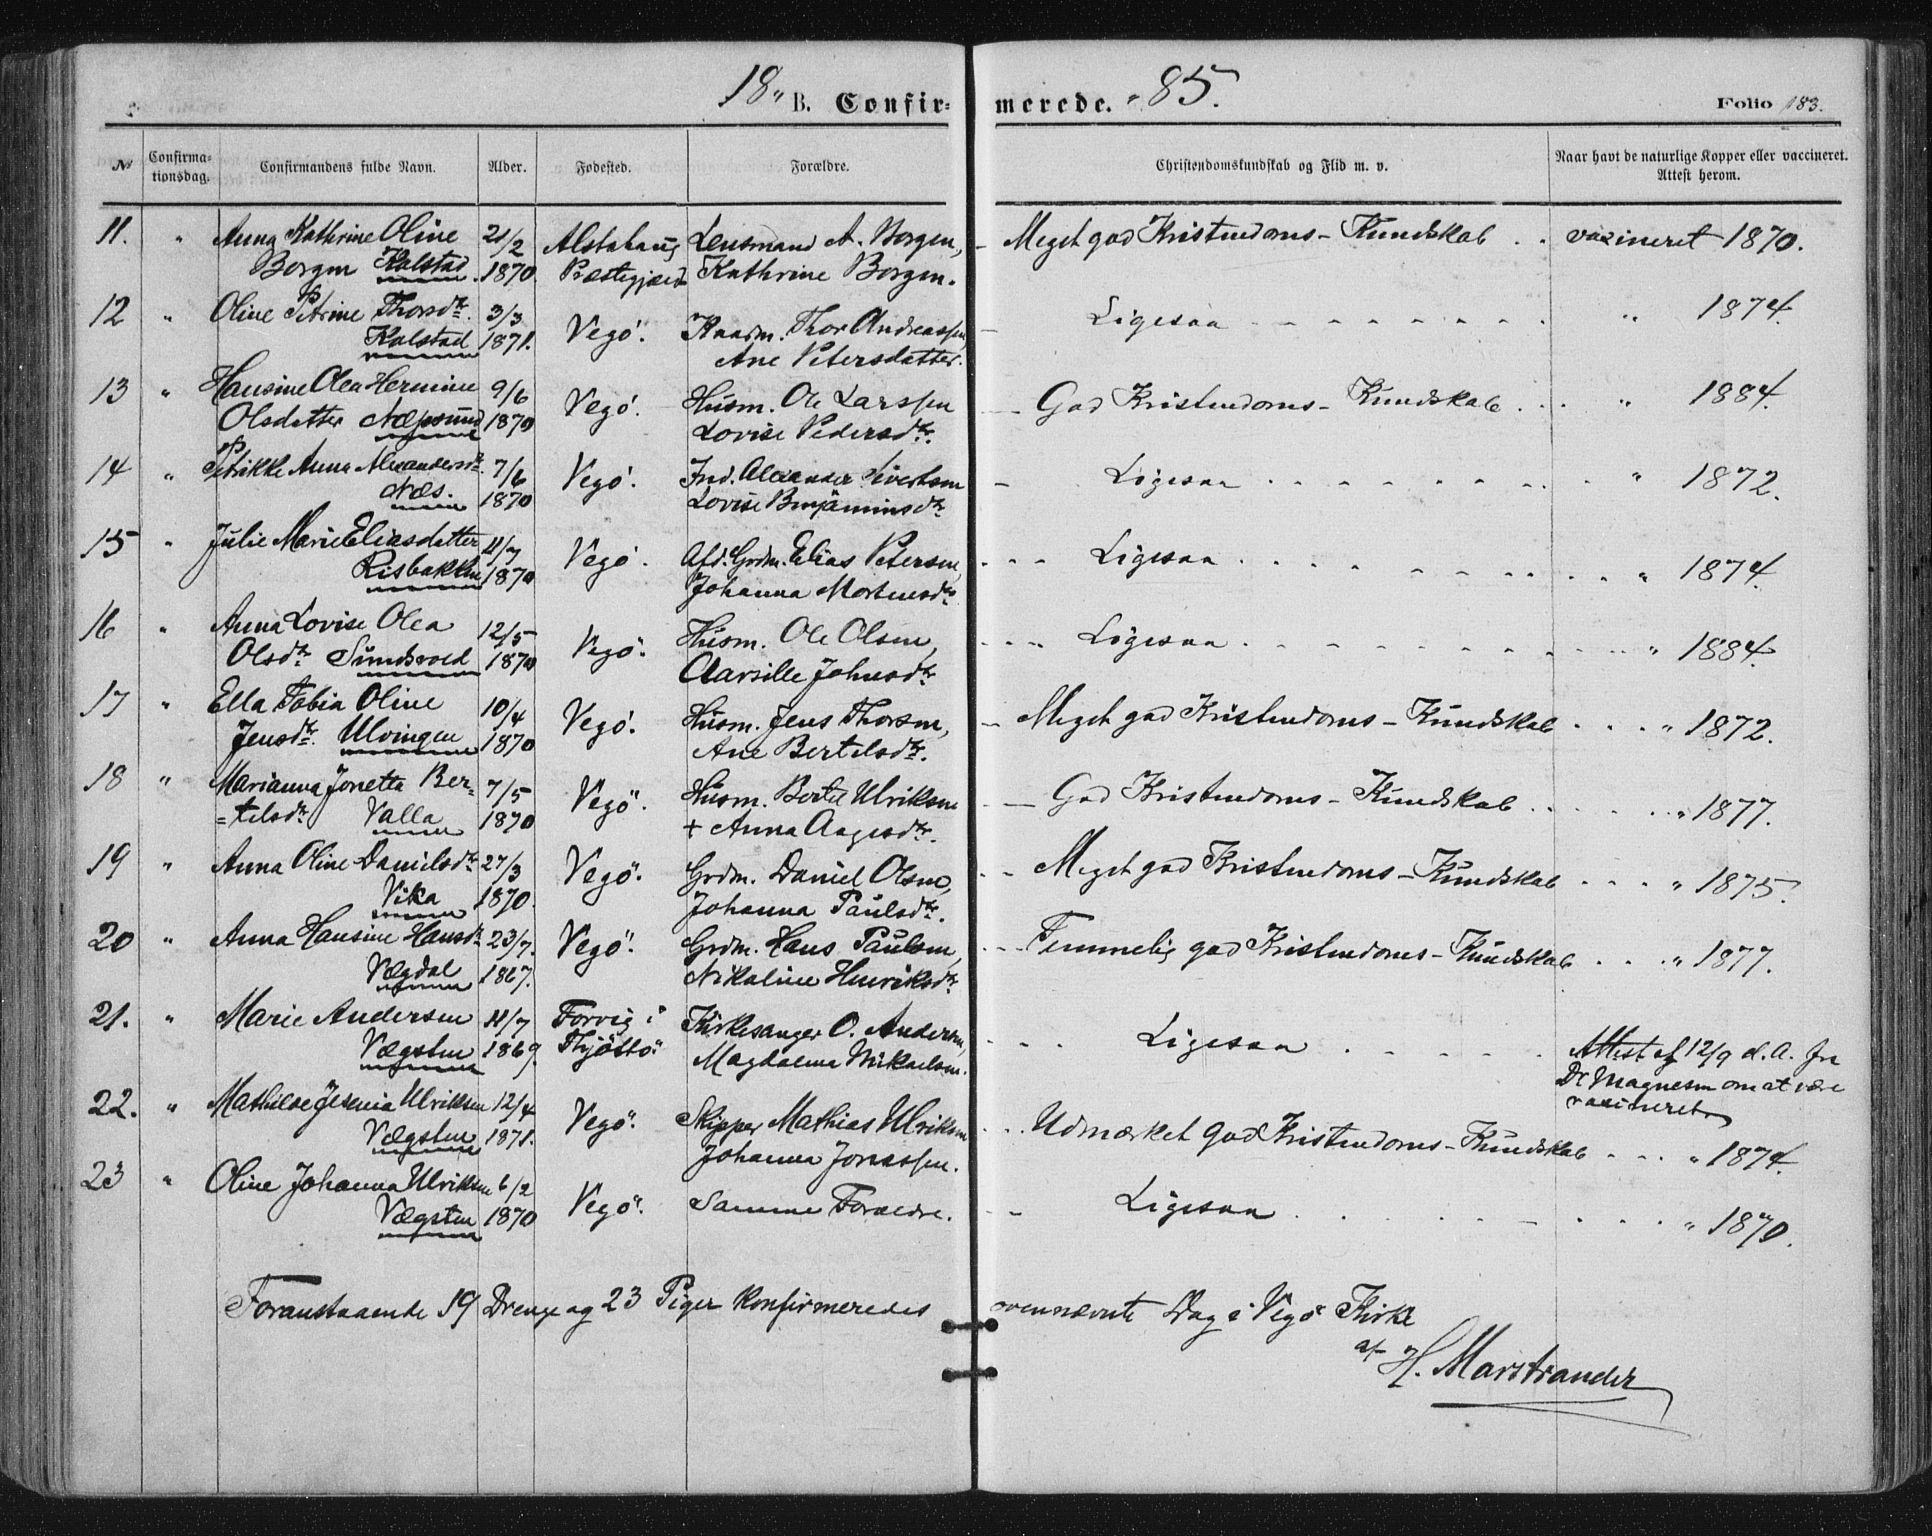 18 " B. Confir- merede. " 85. Folio 183.
Nr Confirmationsdag. Confirmandens fulde Navn. Alder. Fødested. Forældre. Christendomskundskab og Flid m. v. Naar havt de naturlige Kopper eller vaccineret. Attest herom.
11. " Anna Kathrine Oline 21/2 Alstahaug Lensmand A. Borgen, - Meget god Kristendoms-Kundskab . . vaxineret 1870.
Borgen Kalstad 1870. Præstegjæld Kathrine Borgen.
12 " Oline Petrine Thorsdtr. 3/3 Vegö. Kaarm. Thor Andreassen, - Ligesaa - - - - " 1874.
Kalstad 1871. Ane Petersdatter.
13 " Hansine Olea Hermine 9/6 Vegö. Husm. Ole Larssen - God Kristendoms-Kundskab . . " 1884.
Olsdatter Næssund 1870 Lovise Pedersdtr.
14 " Petrikke Anna Alexandersdtr 7/6 Vegö. Ind. Alexander Sivertsen - Ligesaa . . . . " 1872.
Næs. 1870 Lovise Benjaminsdtr
15 " Julie Marie Eliasdatter 11/7 Vegö. Afd. Grdm. Elias Petersen, Ligesaa . . . . " 1874.
Risbakken 1870 Johanna Mortensdtr
16 " Anna Lovise Olea 12/5 Vegö. Husm. Ole Olsen, Ligesaa . . . . " 1884.
Olsdtr Sundsvold 1870 Aarsille Johnsdtr
17 " Ella Tobia Oline 10/4 Vegö. Husm. Jens Thorsen, - Meget god Kristendoms-Kundskab . . . " 1872.
Jensdtr. Ulvingen 1870 Ane Bertelsdtr.
18 " Marianna Jonetta Ber- 7/5 Vegö. Husm. Bertel Ulriksen - God Kristendoms-Kundskab . . " 1877.
=telsdtr Valla 1870 + Anna Aagesdtr.
19 " Anna Oline Danielsdtr 27/3 Vegö. Grdm. Daniel Olsen, - - Meget god Kristendoms-Kundskab . . . " 1875.
Vika 1870. Johanna Paulsdtr.
20 " Anna Hansine Hansdtr 23/7. Vegö. Grdm. Hans Paulsen, - - Temmelig god Kristendoms-Kundskab . . . " 1877.
Vægdal 1867. Nikoline Henriksdtr.
21. " Marie Andersen 11/7 Forvig i Kirkesanger O. Andersen, Ligesaa . . . . Attest af 12/9 d. A. fra
Vægsten 1869. Thjöttö. Magdalena Mikaelsen. Dr Magnesen om at være
vaxineret
22. " Mathilde Jesenia Ulriksen 12/4 Vegö. Skipper Mathias Ulriksen - . . Udmærket god Kristendoms-Kundskab . . . " 1874.
Vægsten 1871. Johanna Jonassen.
23 " Oline Johanna Ulriksen 6/2 Vegö. Samme Forældre. - Ligesaa . . . . " 1870.
Vægsten 1870
Foranstaaende 19 Drenge og 23 Piger konfirmeredes ovennævnte Dag i Vegö Kirke
af H. Marstrander